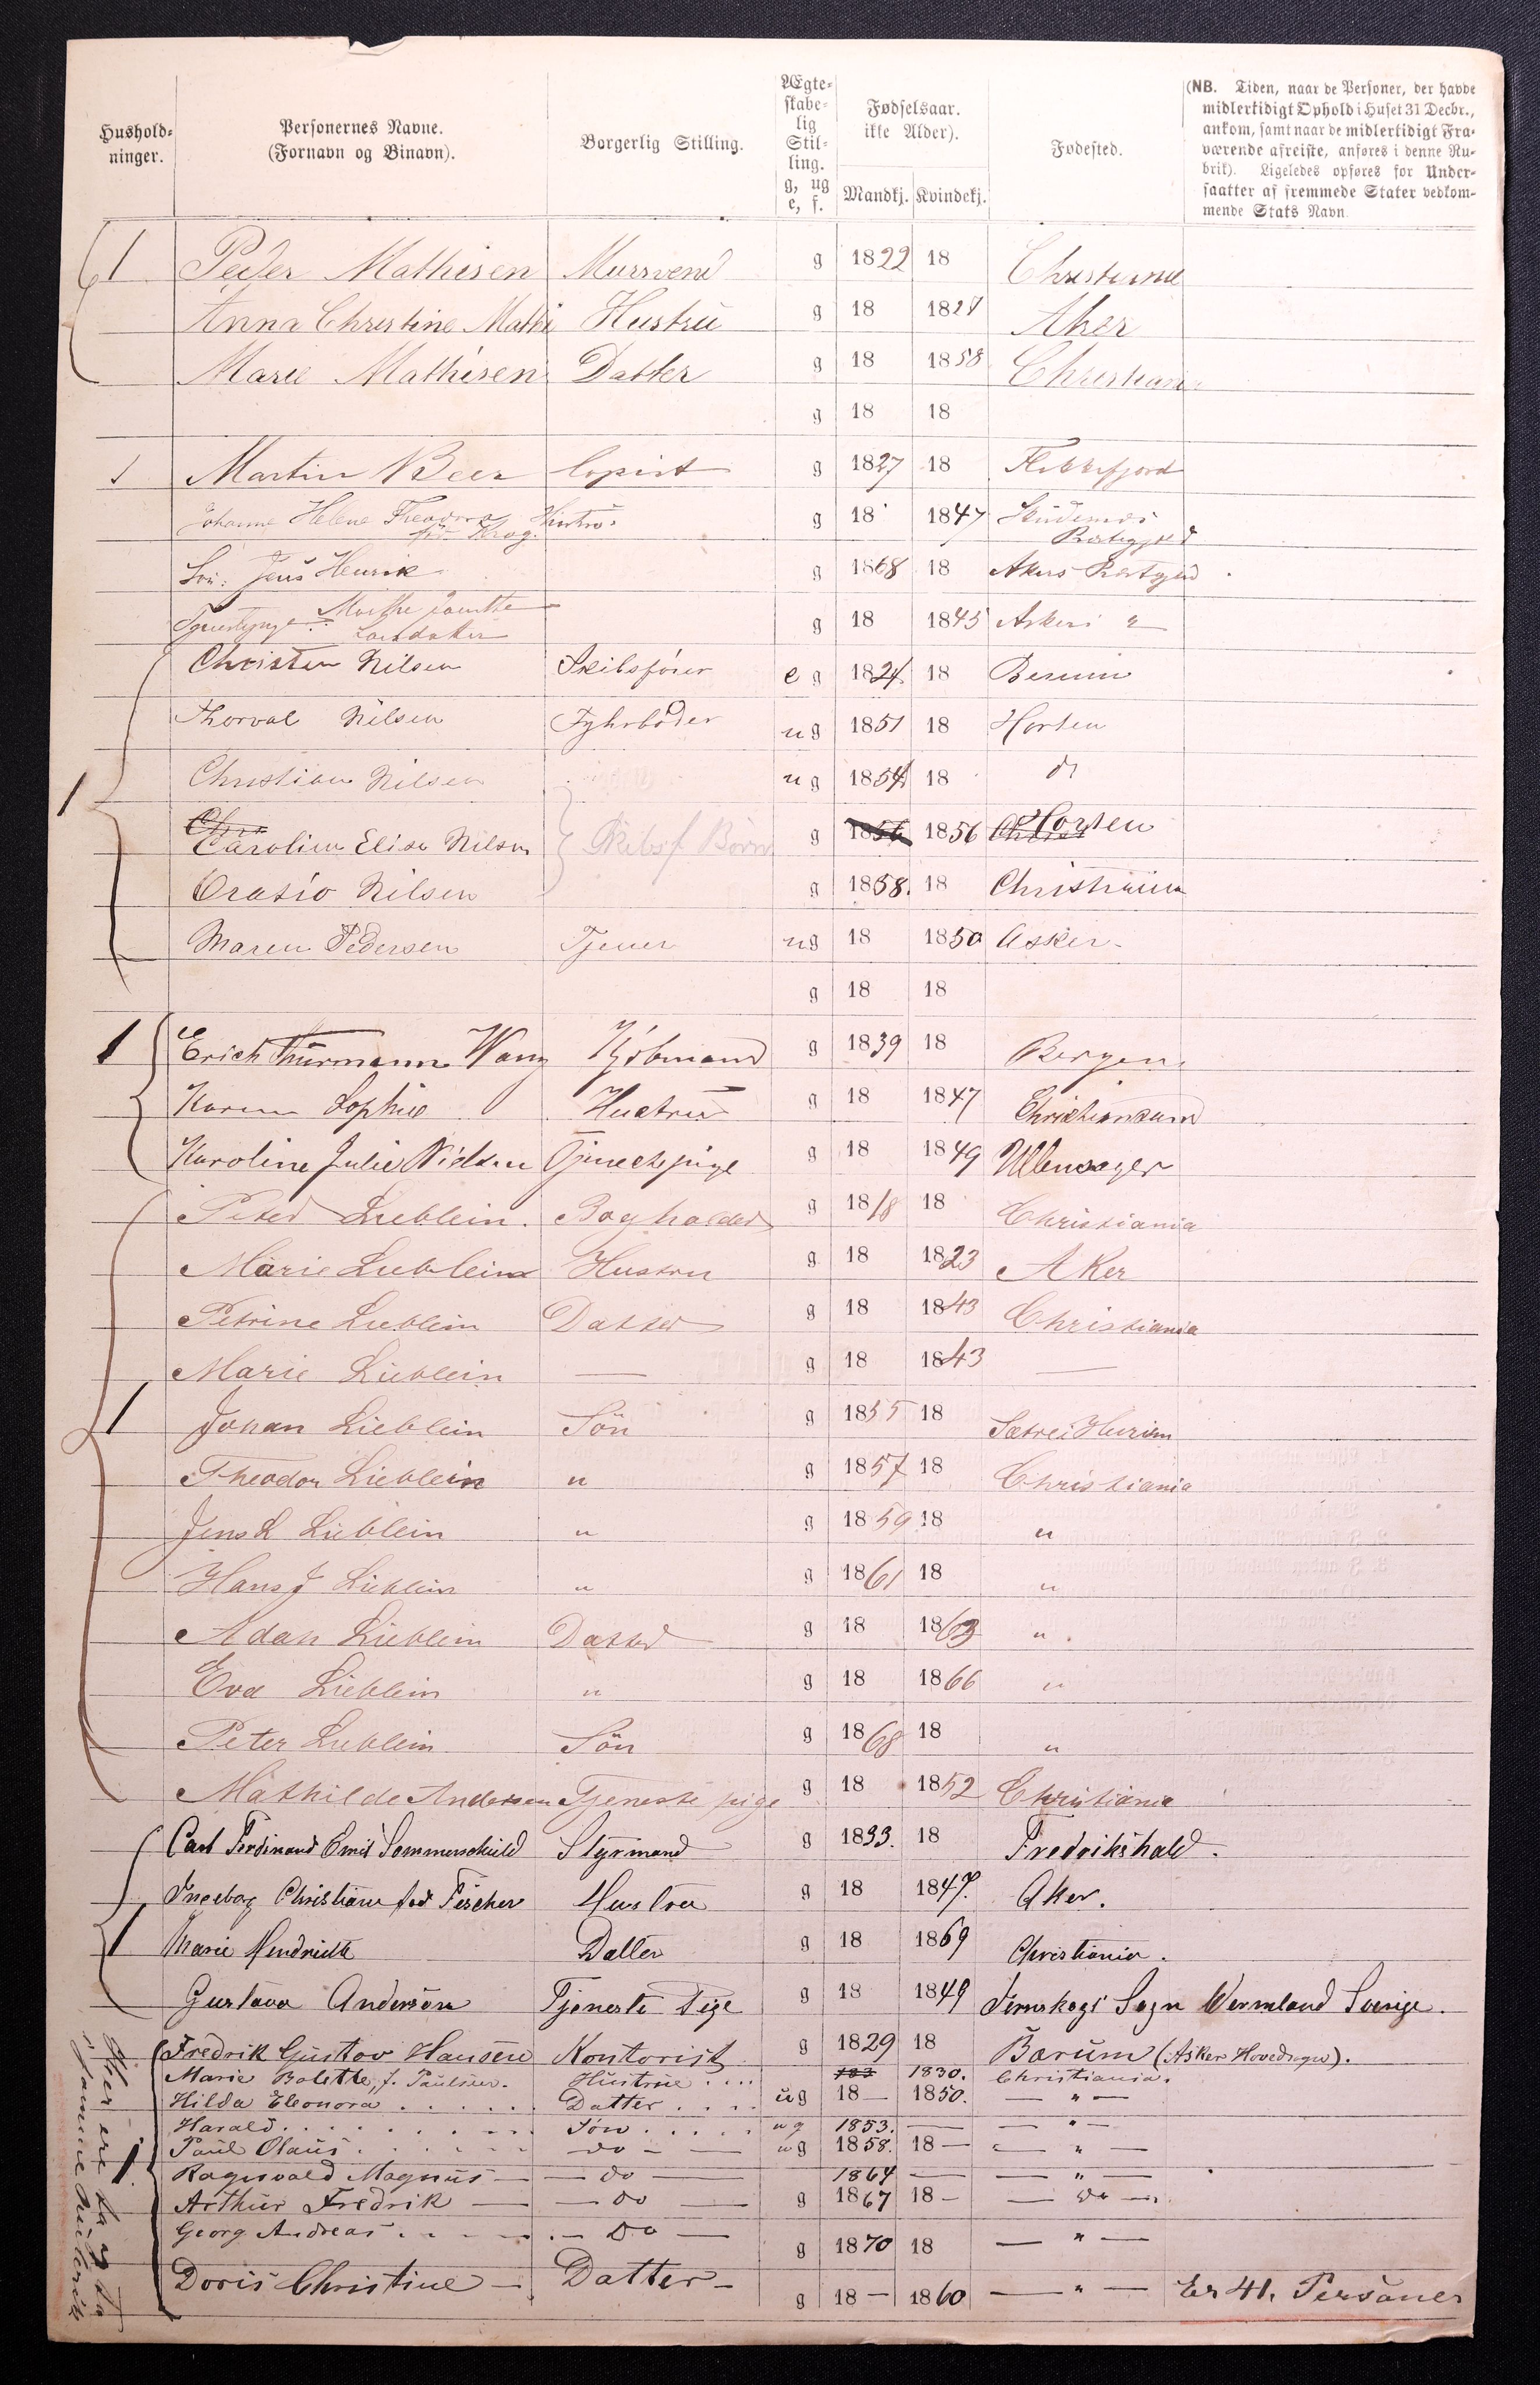 Hushold-
ninger.
Personernes Navne.
(Fornavn og Binavn).
Borgerlig Stilling.
Ægte-
skabe-
lig
Stil-
ling.
g, ug
e, f.
Fødselsaar.
ikke Alder).
Mandkj. Kvindekj.
Fødested.
(NB. Tiden, naar de Personer, der havde
midlertidigt Ophold i Huset 31 Decbr.,
ankom, samt naar de midlertidigt Fra-
værende afreiste, anføres i denne Ru-
brik). Ligeledes opføres for Under-
saatter af fremmede Stater vedkom-
mende Stats Navn.
1 Peder Mathisen Murrvend g 1822 18 Christiania
Anna Christine Mathi Hustru g 18 1828 Aker
Marie Mathisen Datter g 18 1858 Christiania
g 18 18
1 Martin Beer Copist g 1827 18 Flekkefjord
Johanne Helene Theodora Hustru g 18 1847
fød Krog. Præstegjeld
Søn: Jens Henrik g 1868 18 Akers Præstgjeld
Marthe g 18 1845 Asker
Christen Nilsen Skibsfører e g 1824 18 Berum
Thorval Nilsen Fyhrbøder ug 1851 18 Horten
1 Christian Nilsen ug 1854 18 do
Chra
Caroline Elise Nilsen Skibsf Børn g 1856 1856 Horten
Orasio Nilsen g 1858. 18 Christiania
Maren Pedersen Tjener ug 18 1850 Asker.
g 18 18
1 Erich Thürmann Wang Kjøbmand g 1839 18 Bergen
Karen Sophie Hustru g 18 1847 Christiansund
Karoline Julie Nielsen Tjenestepige g 18 1849 Ullensager
Peter Lieblein. Bogholder g 1818 18 Christiania
Marie Lieblein Hustru g 18 1823 Aker
Petrine Lieblein Datter g 18 1843 Christiania
Marie Lieblein — g 18 1843 —
1 Johan Lieblein Sön g 1855 18 Sætre i Hurum
Theodor Lieblein " g 1857 18 Christiania
Jens L Lieblein " g 1859 18 "
Hans J Lieblein " g 1861 18 "
Adah Lieblein Datter g 18 1863 "
Eva Lieblein " g 18 1866 "
Peter Lieblein Sön g 1868 18 "
Mathilde Andersen Tjeneste pige g 18 1852 Christiania
Carl Ferdinand Emil Sommerschield Styrmand g 1833. 18 Fredrikshald.
Ingeborg Christiane fød Fischer Hustru g 18 1847. Aker.
1 Marie Hendriette Datter g 18 1869 Christiania.
Gustava Anderson Tjeneste Pige g 18 1849 Jernskogs Sogn Wermland Sverige.
Fredrik Gustav Hansen Kontorist g 1829 18 Bærum (Asker Hovedsogn).
Marie Bolette, f. Paulsen. Hustrue 183 1830. Christiania.
Hilda Eleonora Datter ug 18— 1850. — " —
Harald Søn ug 1853. — — " —
1 Paul Olaus — do — ug 1858. 18— — " —
Ragnvald Magnus — do — 1864 — — " —
Arthur Fredrik — do — g 1867 18— — do —
Georg Andreas — Do — g 1870 18 — " —
Doris Christine — Datter — g 18— 1860 — " — Er 41. Personer